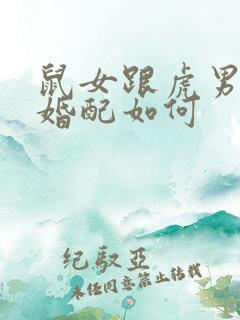 鼠女跟虎男
婚配如何
纪驭亚
未经同意禁止转载